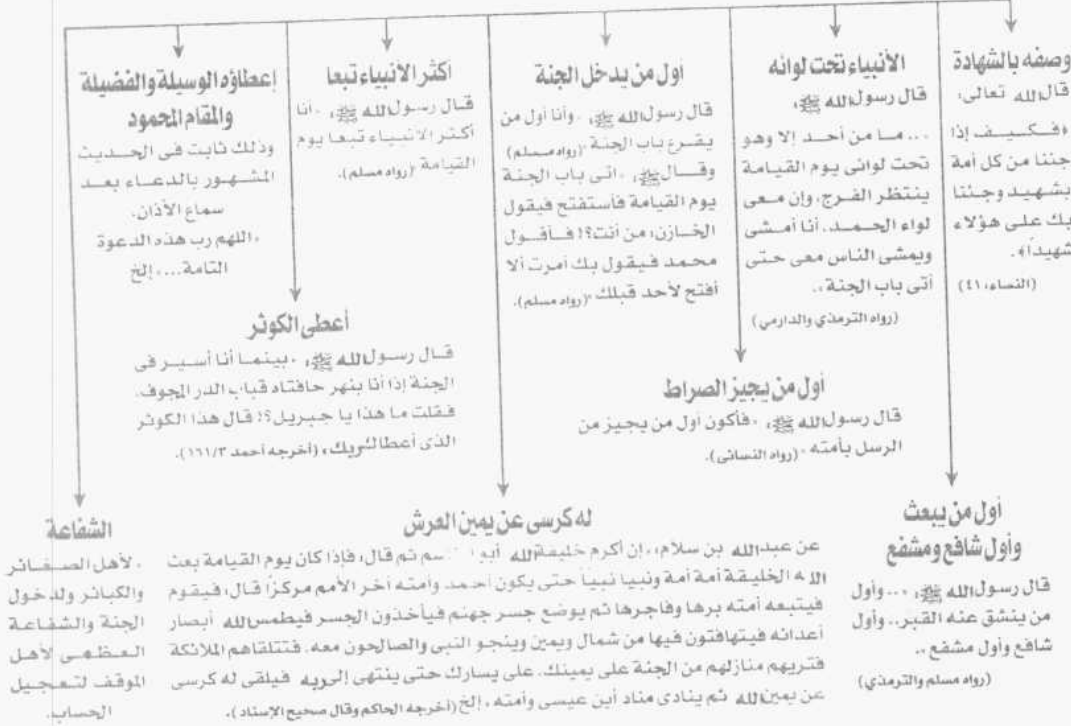 وصفه بالشهادة
قال الله تعالى:
﴿فكيف إذا
جئنا من كل أمة
بشهيد وجئنا
بك على هؤلاء
شهيداً﴾.
(النساء: ٤١)
الأنبياء تحت لوائه
قال رسول الله ﷺ:
«... ما من أحد إلا وهو
تحت لوائى يوم القيامة
ينتظر الفرج، وإن معى
لواء الحمد، أنا أمشى
ويمشى الناس معى حتى
أتى باب الجنة».
(رواه الترمذي والدارمي)
أول من يدخل الجنة
قال رسول الله ﷺ: «وأنا أول من
يقرع باب الجنة» (رواه مسلم)
وقال ﷺ: «أتى باب الجنة
يوم القيامة فأستفتح فيقول
الخازن: من أنت؟! فأقول
محمد فيقول بك أمرت ألا
أفتح لأحد قبلك» (رواه مسلم).
أكثر الأنبياء تبعا
قال رسول الله ﷺ: «أنا
أكثر الأنبياء تبعا يوم
القيامة» (رواه مسلم).
إعطاؤه الوسيلة والفضيلة
والمقام المحمود
وذلك ثابت فى الحديث
المشهور بالدعاء بعد
سماع الأذان.
«اللهم رب هذه الدعوة
التامة...» إلخ
أعطى الكوثر
قال رسول الله ﷺ: «بينما أنا أسير فى
الجنة إذا أنا بنهر حافتاه قباب الدر المجوف،
فقلت ما هذا يا جبريل؟! قال هذا الكوثر
الذى أعطاك ربك» (أخرجه أحمد ١٦١/٣).
أول من يجيز الصراط
قال رسول الله ﷺ: «فأكون أول من يجيز من
الرسل بأمته» (رواه النسائى).
أول من يبعث
وأول شافع ومشفع
قال رسول الله ﷺ: «... وأول
من ينشق عنه القبر.. وأول
شافع وأول مشفع».
(رواه مسلم والترمذي)
له كرسى عن يمين العرش
عن عبدالله بن سلام: «إن أكرم خليفة الله أبو سم ثم قال: فإذا كان يوم القيامة بعث
الله الخليقة أمة أمة ونبيا نبيا حتى يكون أحمد وأمته آخر الأمم مركزاً قال: فيقوم
فيتبعه أمته برها وفاجرها ثم يوضع جسر جهنم فيأخذون الجسر فيطمس الله أبصار
أعدائه فيتهافتون فيها من شمال ويمين وينجو النبى والصالحون معه. فتتلقاهم الملائكة
فتريهم منازلهم من الجنة على يمينك. على يسارك حتى ينتهى إلى ربه فيلقى له كرسى
عن يمين الله ثم ينادى مناد أين عيسى وأمته» إلخ (أخرجه الحاكم وقال صحيح الإسناد).
الشفاعة
«لأهل الصغائر
والكبائر ولدخول
الجنة والشفاعة
العظمى لأهل
الموقف لتعجيل
الحساب.